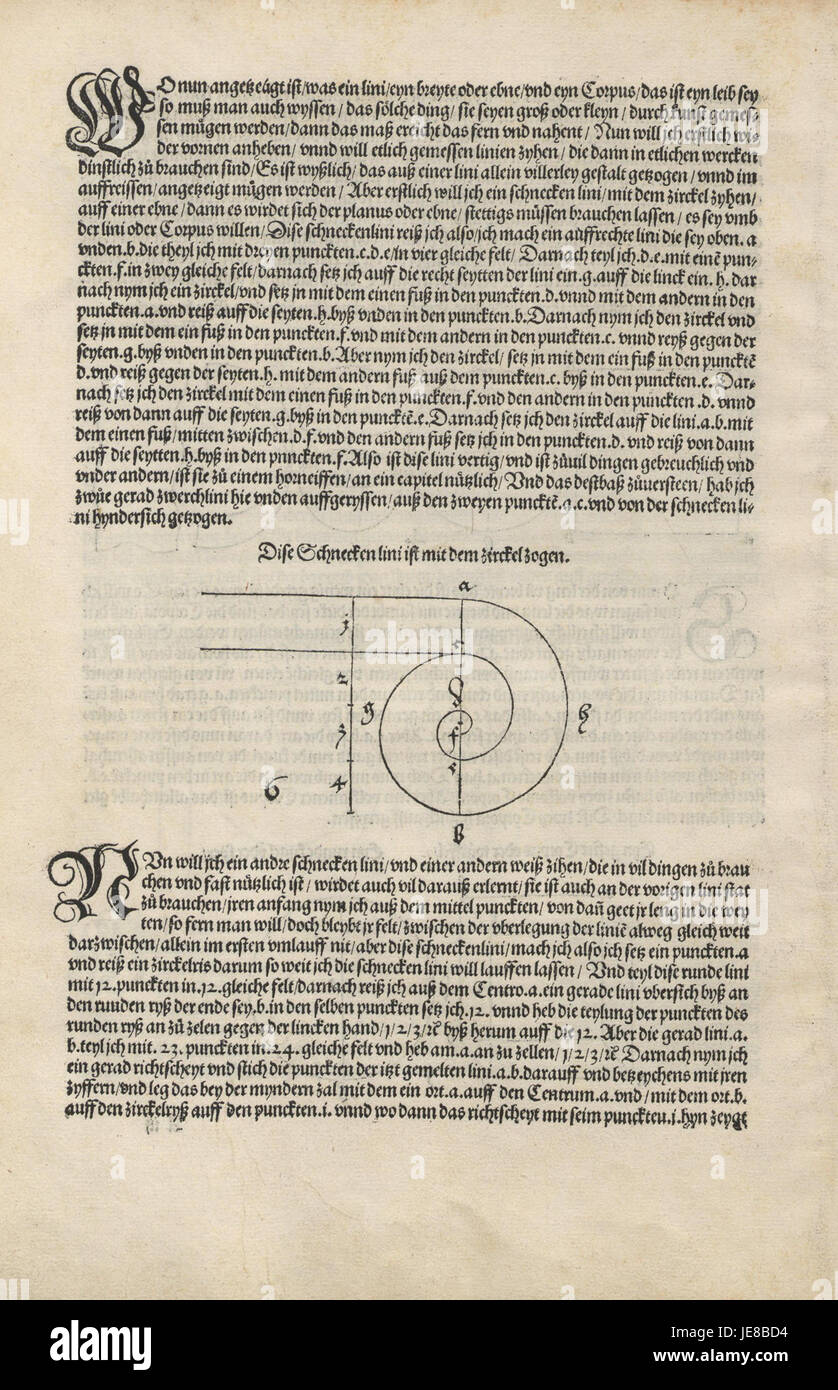 WO nun angetzeigt ist/was ein lini/eyn breyte oder ebne/vnd eyn Corpus/das ist eyn leib sey
so muß man auch wyssen/das sölche ding/sie seyen groß oder kleyn/durch kunst gemes-
sen mügen werden/dann das maß ereicht das fern vnd nahent/Nun will jch erstlich wi-
der vornen anheben/vnnd will etlich gemessen linien zyhen/die dann in etlichen wercken
dinstlich zů brauchen sind/Es ist wyßlich/das auß einer lini allein villerley gestalt getzogen/vnnd im
auffreissen/angetzeigt mügen werden/Aber erstlich will jch ein schnecken lini/mit dem zirckel zyhen/
auff einer ebne/dann es wirdet sich der planus oder ebne/stettigs müssen brauchen lassen/es sey vmb
der lini oder Corpus willen/Dise schneckenlini reiß jch also/jch mach ein auffrechte lini die sey oben.a
vnden.b.die theyl jch mit dreyen punckten.c.d.e/in vier gleiche felt/Darnach teyl jch.d.e.mit einē pun-
ckten.f.in zwey gleiche felt/darnach setz jch auff die recht seytten der lini ein.g.auff die linck ein.h.dar
nach nym jch ein zirckel/vnd setz jn mit dem einen fuß in den punckten.d.vnnd mit dem andern in den
punckten.a.vnd reiß auff die seyten.h.byß vnden in den punckten.b.Darnach nym jch den zirckel vnd
setz jn mit dem ein fuß in den punckten.f.vnd mit dem andern in den punckten.c.vnnd reyß gegen der
seyten.g.byß vnden in den punckten.b.Aber nym jch den zirckel/setz jn mit dem ein fuß in den puncktē
d.vnd reiß gegen der seyten.h.mit dem andern fuß auß dem punckten.c.byß in den punckten.e.Dar-
nach setz jch den zirckel mit dem einen fuß in den punckten.f.vnd den andern in den punckten.d.vnnd
reiß von dann auff die seyten.g.byß in den puncktē.e.Darnach setz jch den zirckel auff die lini.a.b.mit
dem einen fuß/mitten zwischen.d.f.vnd den andern fuß setz jch in den punckten.d.vnd reiß von dann
auff die seytten.h.byß in den punckten.f.Also ist dise lini vertig/vnd ist zůuil dingen gebreuchlich vnd
vnder andern/ist sie zů einem horneiffen/an ein capitel nützlich/Vnd das destbaß zůuersteen/hab jch
zwůe gerad zwerchlini hie vnden auffgeryssen/auß den zweyen puncktē.a.c.vnd von der schnecken li-
ni hyndersich getzogen.
Dise Schnecken lini ist mit dem zirckel zogen.
a
1
c
2
g
d
h
3
f
e
4
6
b
NUn will jch ein andre schnecken lini/vnd einer andern weiß zihen/die in vil dingen zů brau
chen vnd fast nützlich ist/wirdet auch vil darauß erlernt/sie ist auch an der vorigen lini stat
zů brauchen/jren anfang nym jch auß dem mittel punckten/von dañ geet jr leng in die wey
ten/so fern man will/doch bleybt jr felt/zwischen der vberlegung der liniē alweg gleich weit
darzwischen/allein im ersten vmlauff nit/aber dise schneckenlini/mach jch also jch setz ein punckten.a
vnd reiß ein zirckelris darum so weit jch die schnecken lini will lauffen lassen/Vnd teyl dise runde lini
mit 12.punckten in.12.gleiche felt/darnach reiß jch auß dem Centro.a.ein gerade lini vbersich byß an
den runden ryß der ende sey.b.in den selben puncten setz jch.12.vnnd heb die teylung der puncten des
runden ryß an zů zelen gegen der lincken hand/1/2/3/rē byß herum auff die 12.Aber die gerad lini.a.
b.teyl jch mit.23.puncten in.24.gleiche felt vnd heb am.a.an zu zellen/1/2/3/rē Darnach nym jch
ein gerad richtscheyt vnd stich die puncten der itzt gemelten lini.a.b.darauff vnd betzeychens mit jren
zyffern/vnd leg das bey der myndern zal mit dem ein ort.a.auff den Centrum.a.vnd/mit dem ort.b.
auff den zirckelryß auff den puncten.i.vnnd wo dann das richtscheyt mit seim puncten.i.hyn zeygt
alamy
alamy
Image ID: JE8BD4
www.alamy.com